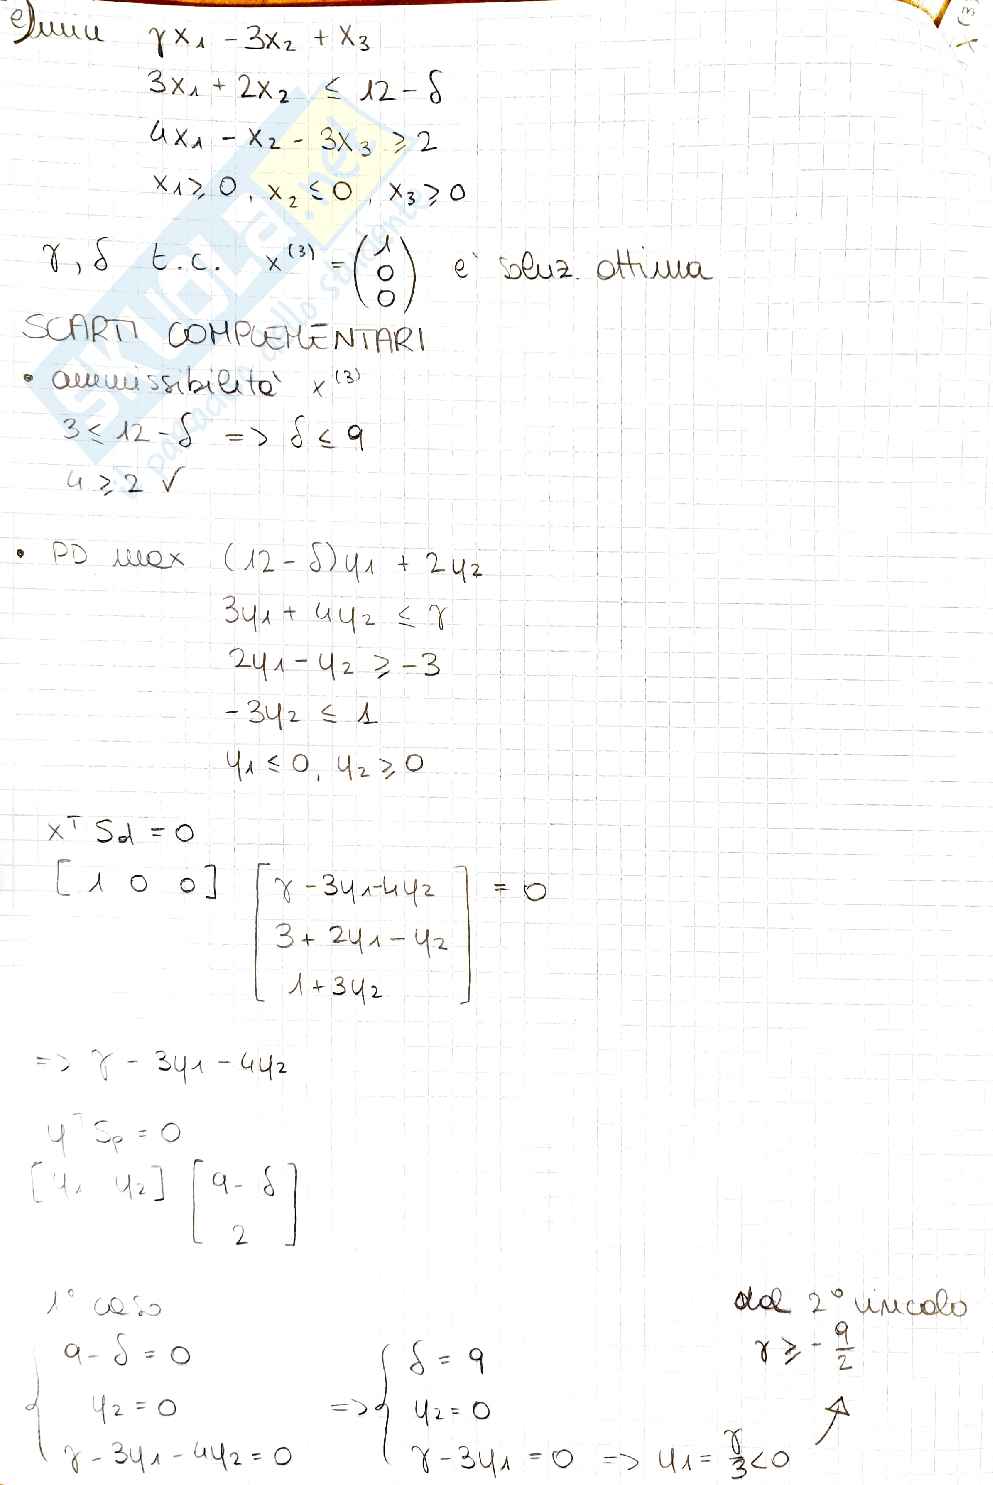 e) min γx₁ - 3x₂ + x₃
3x₁ + 2x₂ ≤ 12 - δ
4x₁ - x₂ - 3x₃ ≥ 2
x₁ ≥ 0, x₂ ≤ 0, x₃ ≥ 0
γ, δ t.c. x⁽³⁾ = (1 0 0) e' soluz. ottima
SCARTI COMPLEMENTARI
• ammissibilità x⁽³⁾
3 ≤ 12 - δ => δ ≤ 9
4 ≥ 2 ✓
• PD max (12 - δ)y₁ + 2y₂
3y₁ + 4y₂ ≤ γ
2y₁ - y₂ ≥ -3
-3y₂ ≤ 1
y₁ ≤ 0, y₂ ≥ 0
xᵀ Sd = 0
[1 0 0] [γ - 3y₁ - 4y₂
3 + 2y₁ - y₂
1 + 3y₂] = 0
=> γ - 3y₁ - 4y₂
yᵀ Sp = 0
[y₁ y₂] [9 - δ
2]
1° caso
{ 9 - δ = 0
y₂ = 0
γ - 3y₁ - 4y₂ = 0
=> { δ = 9
y₂ = 0
γ - 3y₁ = 0 => y₁ = γ/3 < 0
dal 2° vincolo
γ ≥ - 9/2
SKUOLA.net